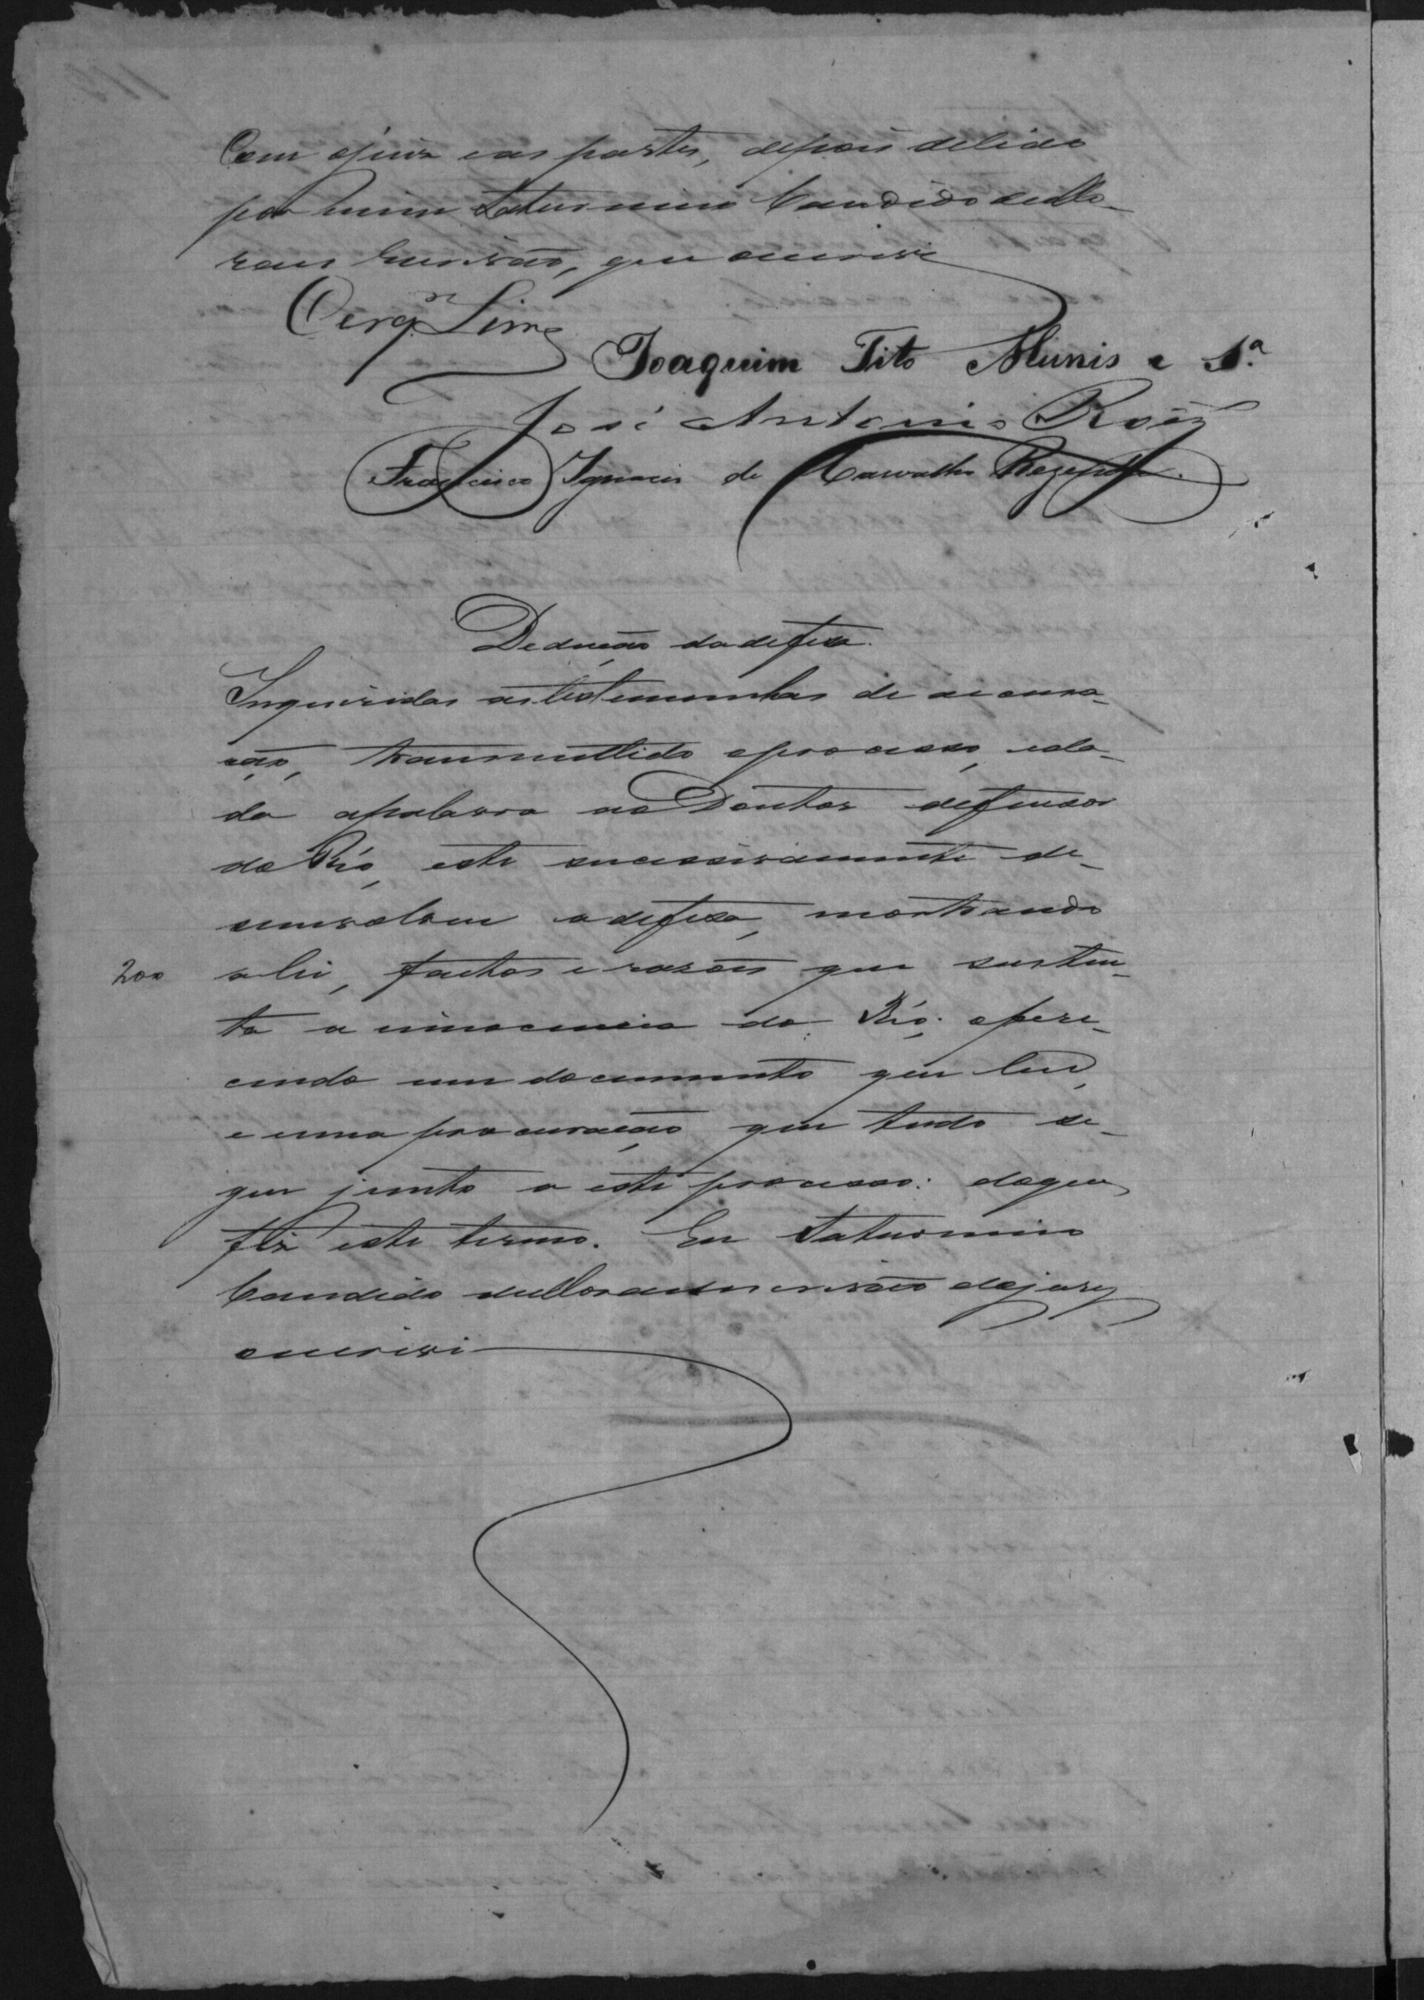 Com o juiz e as partes, depois de lido
por mim Saturnino Candido de Mo-
raes Escrivão, que escrevi
Cerq.ra Lima
Joaquim Tito Munis e S.ª
José Antonio Roiz
Francisco Ignacio de Carvalho Rezende
Deducção da defesa.
Inqueridas as testemunhas de accusa-
ção, transmittido o processo, e da-
da a palavra ao Doutor defensor
do Réo, este successivamente de-
senvolveu a defesa, mostrando
200 a lei, factos e rasões que susten-
ta a innocencia do Réo: offere-
cendo um documento que leu,
e uma procuração que tudo se-
gue junto a este processo: do que
fiz este termo. Eu Saturnino
Candido de Moraes escrivão do jury
escrevi